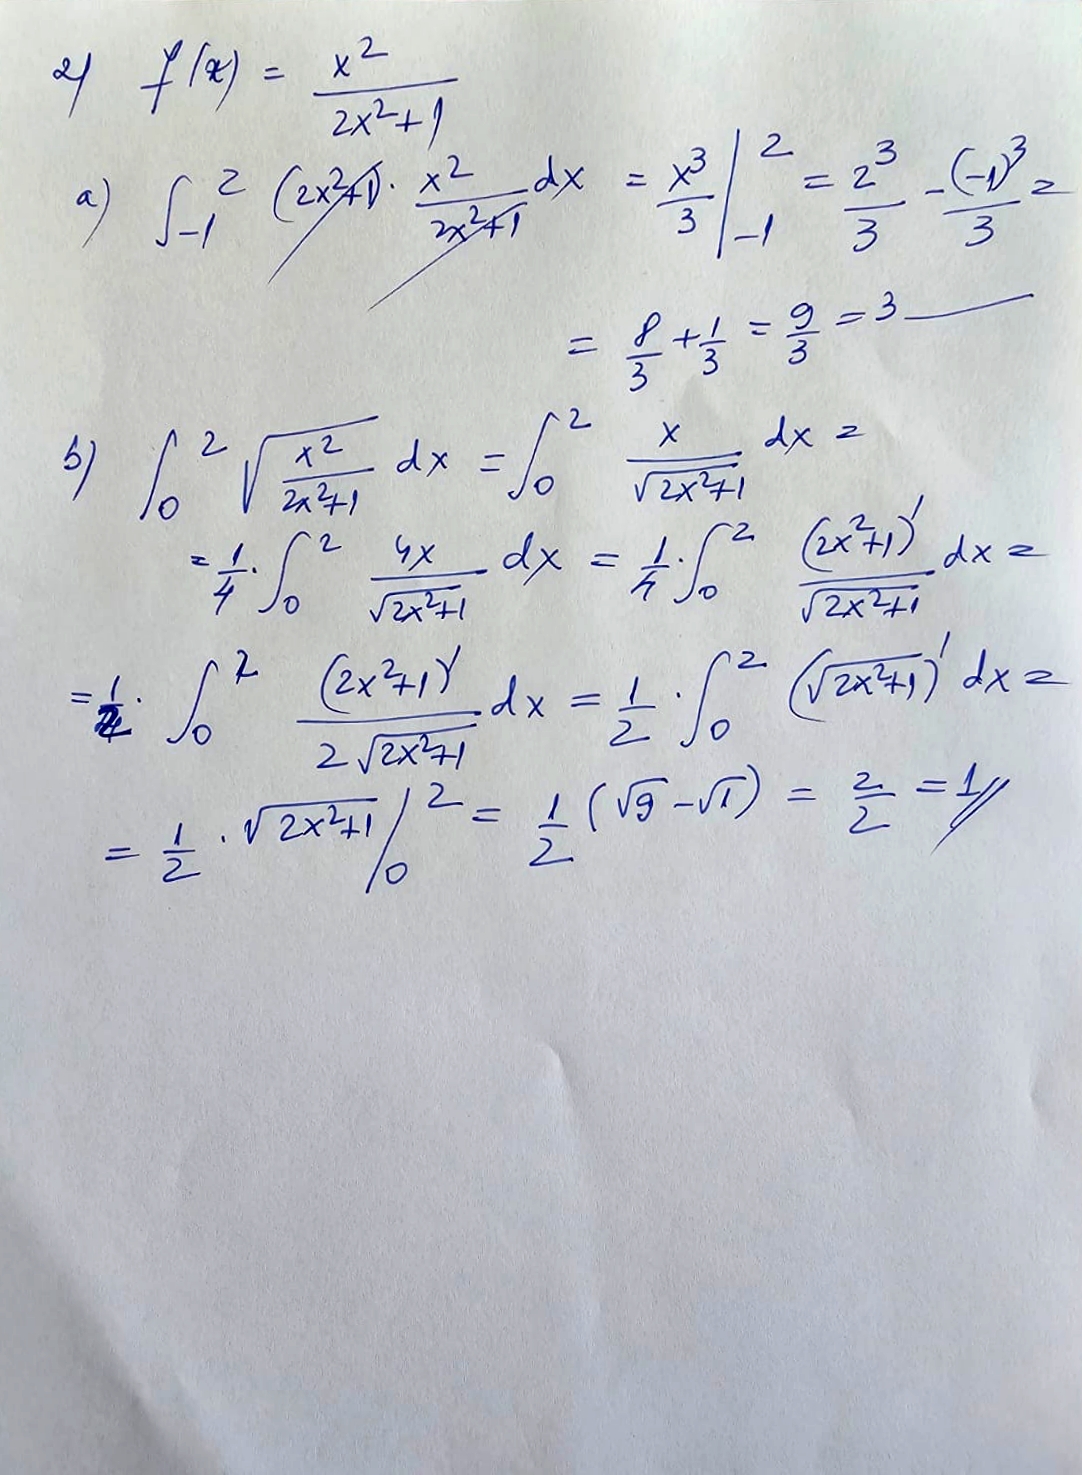 2) f(x) = x²/(2x²+1)
a) ∫₋₁² (2x²+1) · x²/(2x²+1) dx = x³/3 |₋₁² = 2³/3 - (-1)³/3 =
= 8/3 + 1/3 = 9/3 = 3
b) ∫₀² √(x²/(2x²+1)) dx = ∫₀² x/√(2x²+1) dx =
= 1/4 · ∫₀² 4x/√(2x²+1) dx = 1/4 · ∫₀² (2x²+1)'/√(2x²+1) dx =
= 1/2 · ∫₀² (2x²+1)'/(2√(2x²+1)) dx = 1/2 · ∫₀² (√(2x²+1))' dx =
= 1/2 · √(2x²+1) |₀² = 1/2 (√9 - √1) = 2/2 = 1